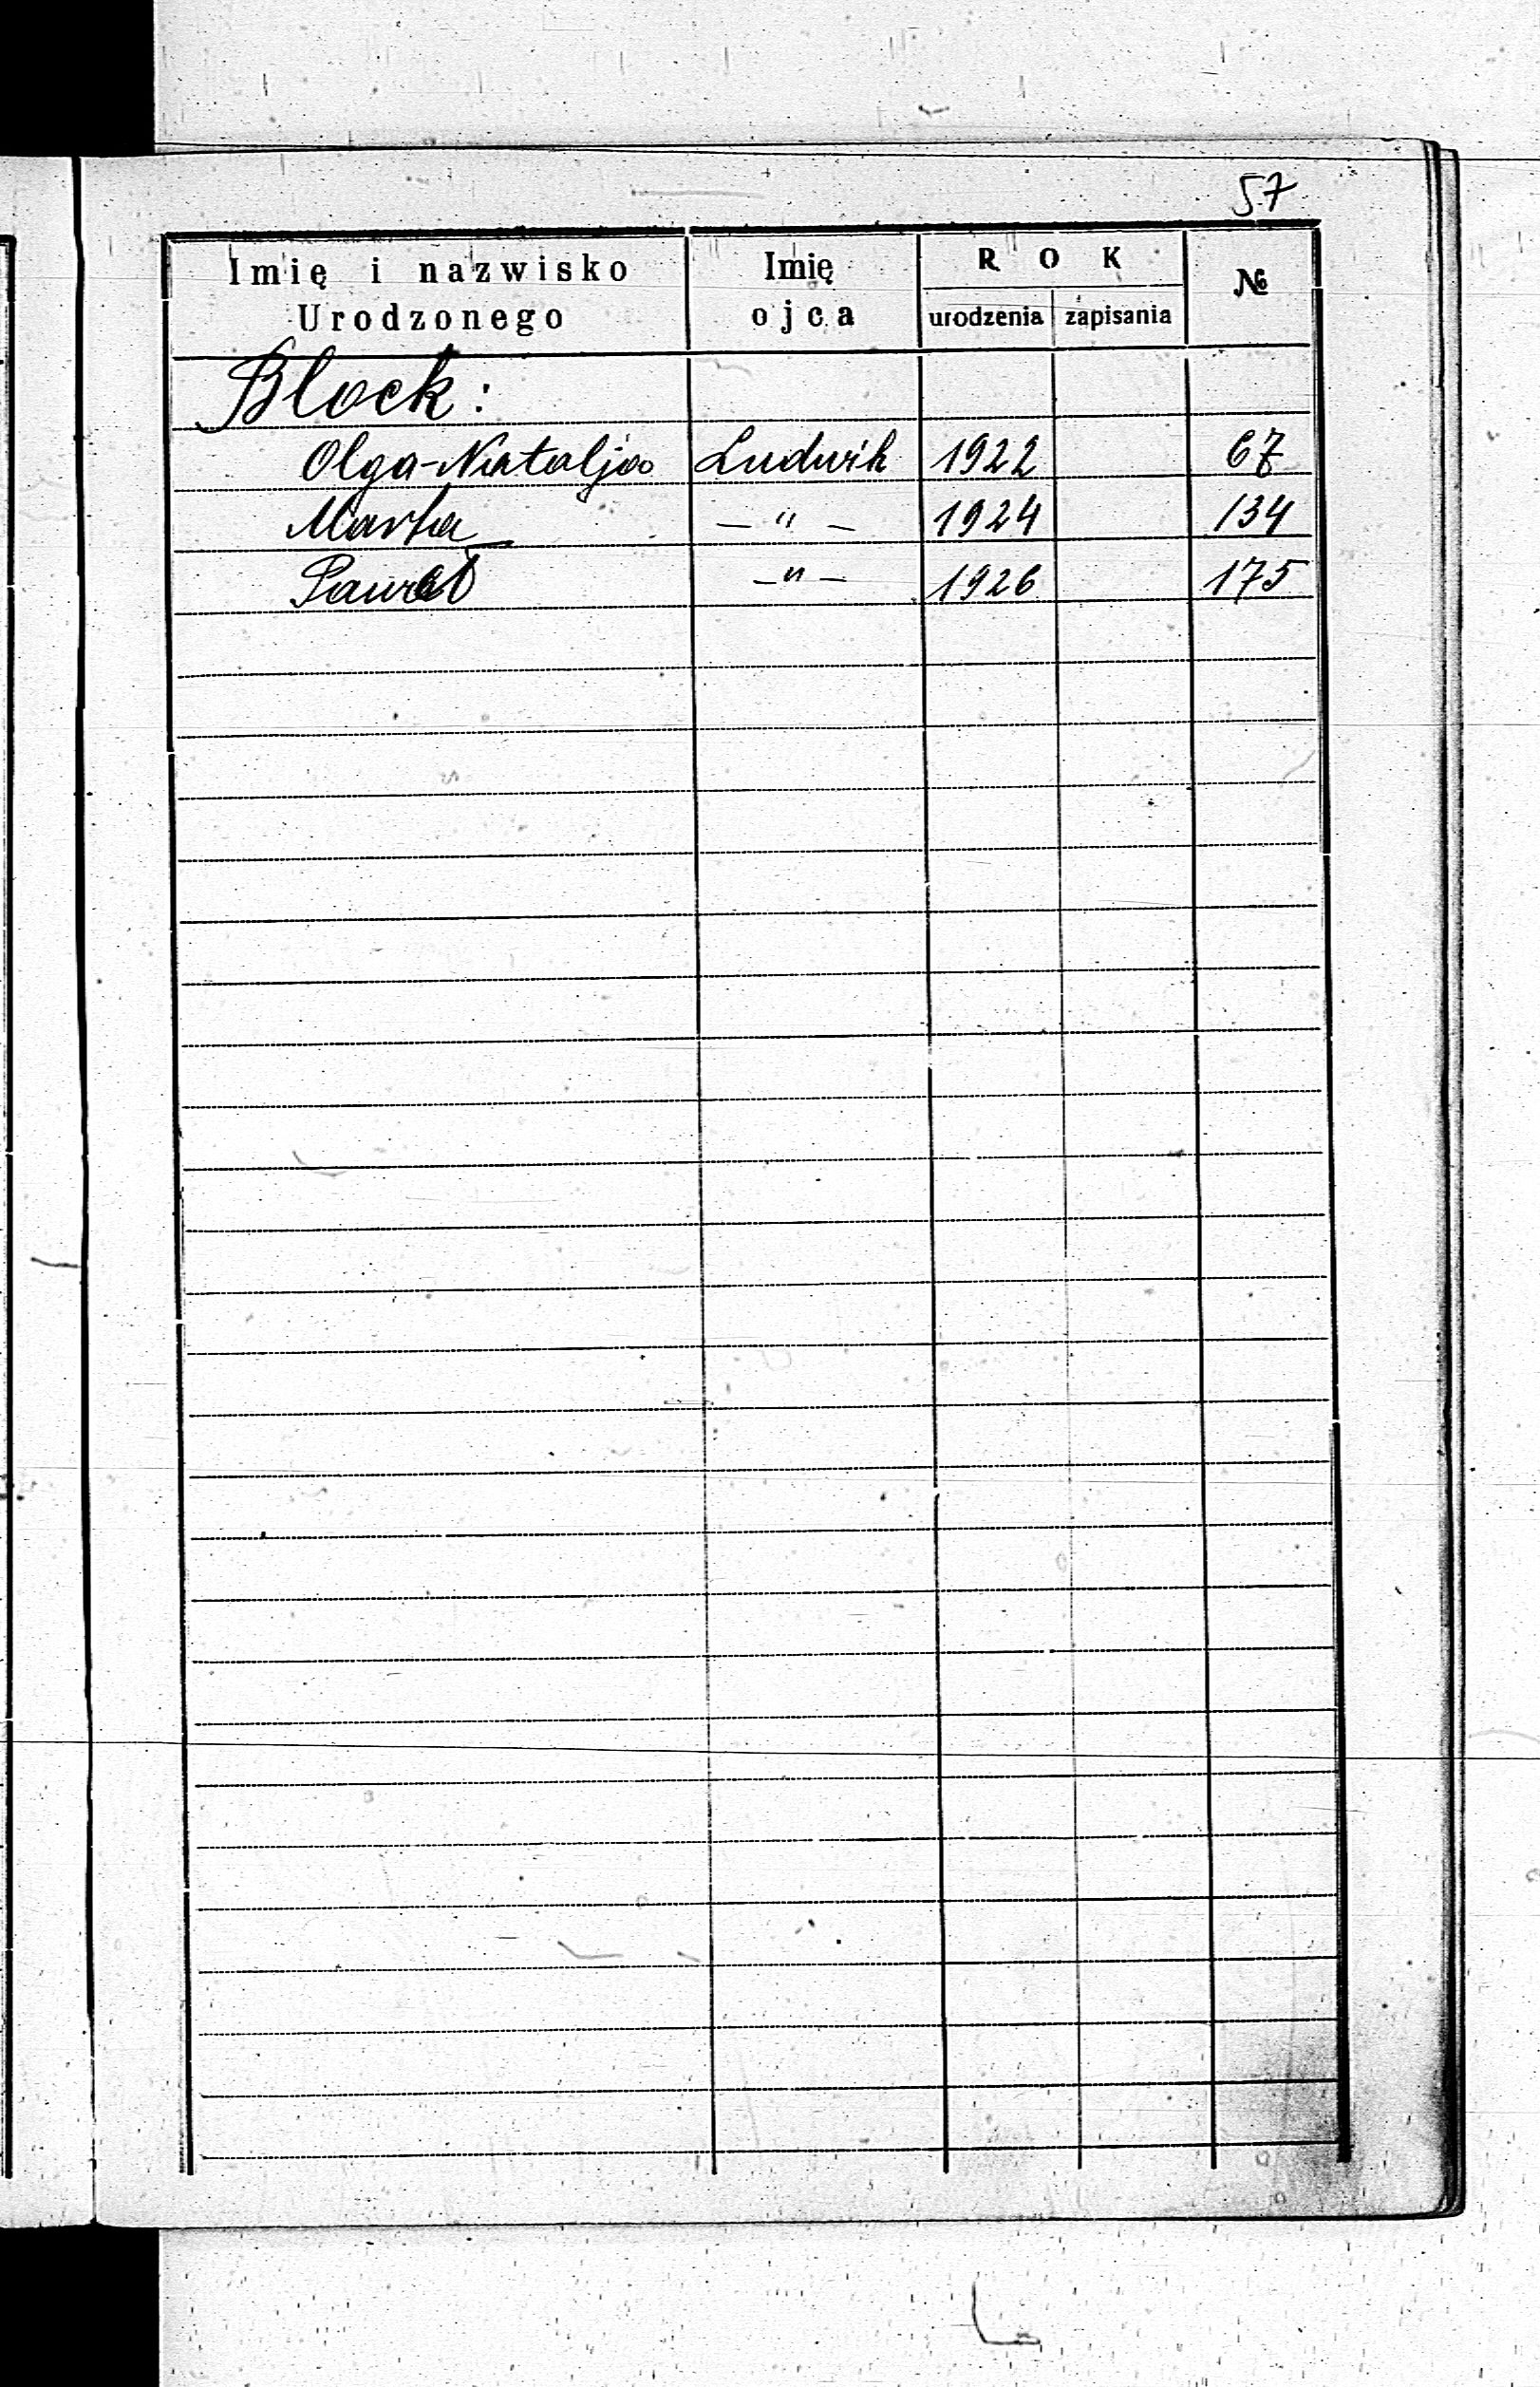 57
Imię i nazwisko Urodzonego Imię ojca ROK urodzenia zapisania №
Block:
Olga-Natalja Ludwik 1922 67
Marta — " — 1924 134
Paweł — " — 1926 175